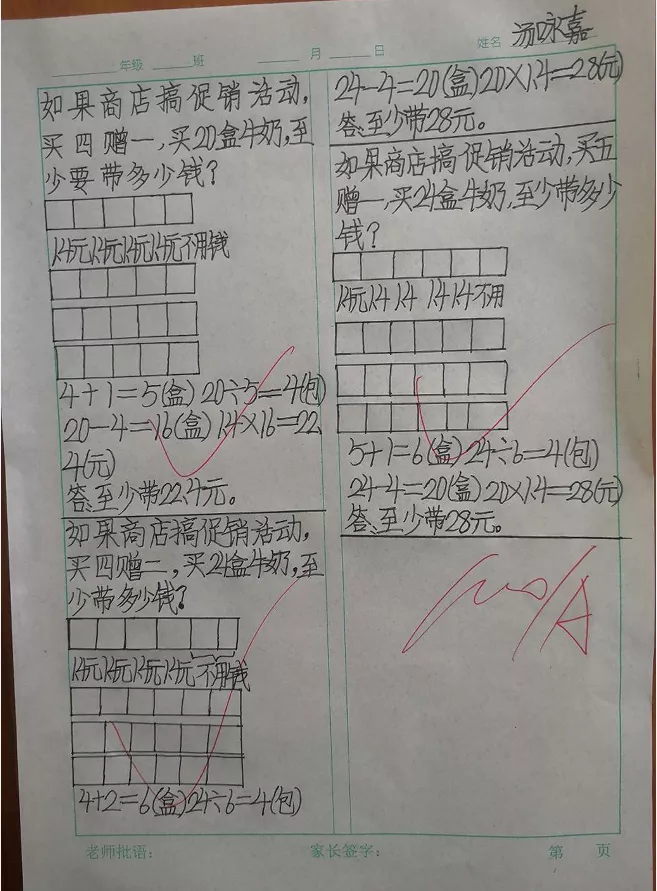 姓名 汤咏嘉
年级 班 月 日
如果商店搞促销活动,
买四赠一,买20盒牛奶,至
少要带多少钱?
1.4元1.4元1.4元1.4元不用钱
4+1=5(盒) 20÷5=4(包)
20-4=16(盒) 1.4×16=22.
4(元)
答:至少带22.4元。
如果商店搞促销活动,
买四赠二,买24盒牛奶,至
少带多少钱?
1.4元1.4元1.4元1.4元不用钱
4+2=6(盒)24÷6=4(包)
24-4=20(盒)20×1.4=28(元)
答:至少带28元。
如果商店搞促销活动,买五
赠一,买24盒牛奶,至少带多少
钱?
1.4元1.4 1.4 1.4 1.4不用
5+1=6(盒)24÷6=4(包)
24-4=20(盒)20×1.4=28(元)
答:至少带28元。
100/A
老师批语: 家长签字: 第 页